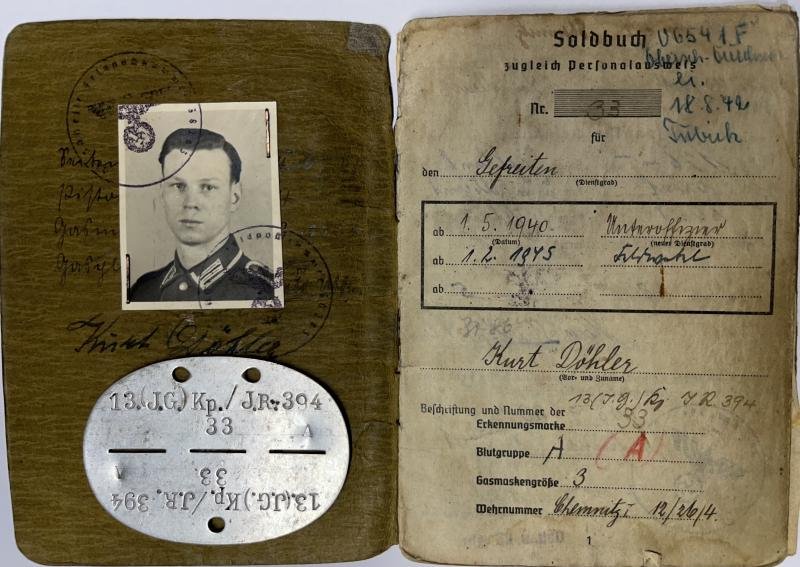 Kurt Döhler
13.(J.G.)Kp./J.R.394
33
A
A
33.
13.(J.G.)Kp./J.R.394
Soldbuch
zugleich Personalausweis
Nr. 33
18.8.42
für
den Gefreiten
(Dienstgrad)
ab 1.5.1940 Unteroffizier
(Datum) (neuer Dienstgrad)
ab 1.2.1945 Feldwebel
ab
Kurt Döhler
(Vor- und Zuname)
13(J.G.)Kp J R 394
Beschriftung und Nummer der
Erkennungsmarke 33
Blutgruppe A (A)
Gasmaskengröße 3
Wehrnummer Chemnitz I 12/26/4.
1